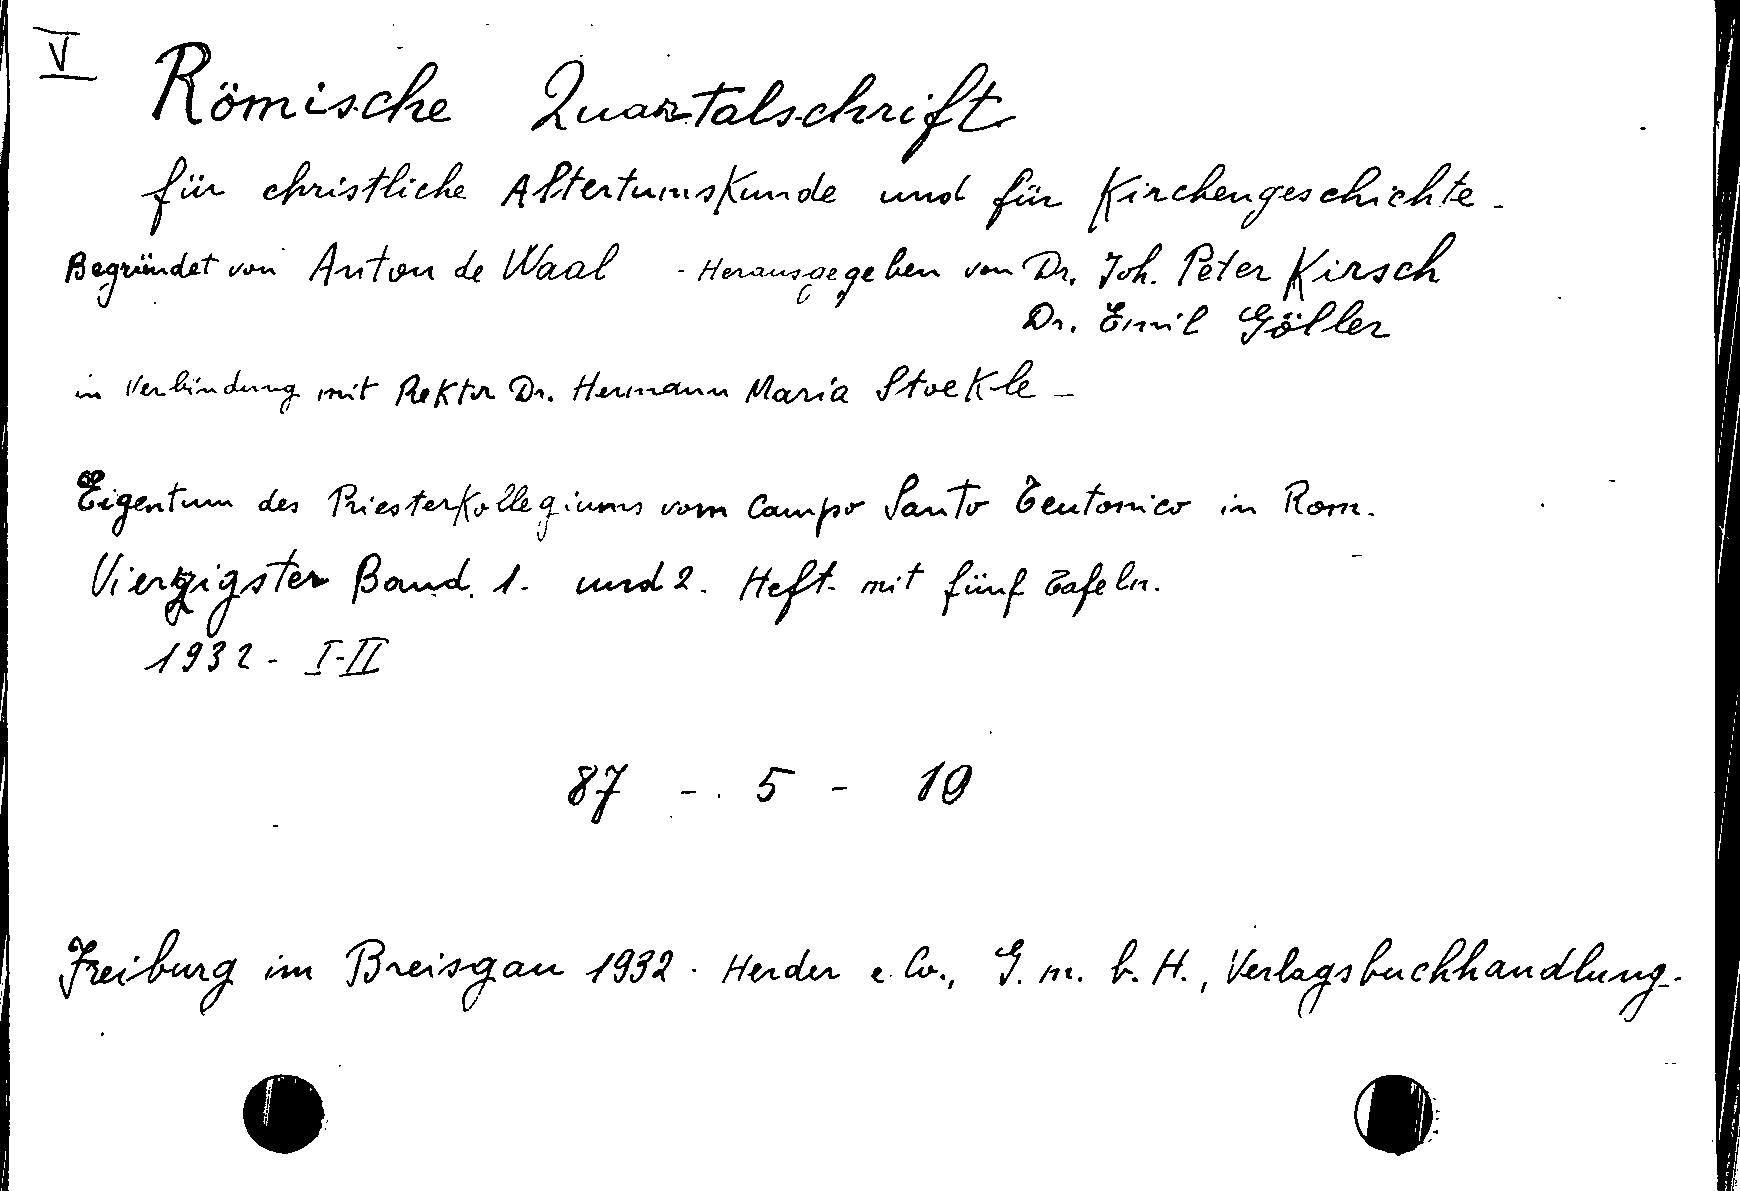 V
Römische Quartalschrift
für christliche Altertumskunde und für Kirchengeschichte.
Begründet von Anton de Waal - Herausgegeben von Dr. Joh. Peter Kirsch
Dr. Emil Göller
in Verbindung mit Rektor Dr. Hermann Maria Stoekle -
Eigentum des Priesterkollegiums vom Campo Santo Teutonico in Rom.
Vierzigster Band. 1. und 2. Heft. mit fünf Tafeln.
1932 - I-II
87 - 5 - 10
Freiburg im Breisgau 1932. Herder e Co., G. m. b. H., Verlagsbuchhandlung.